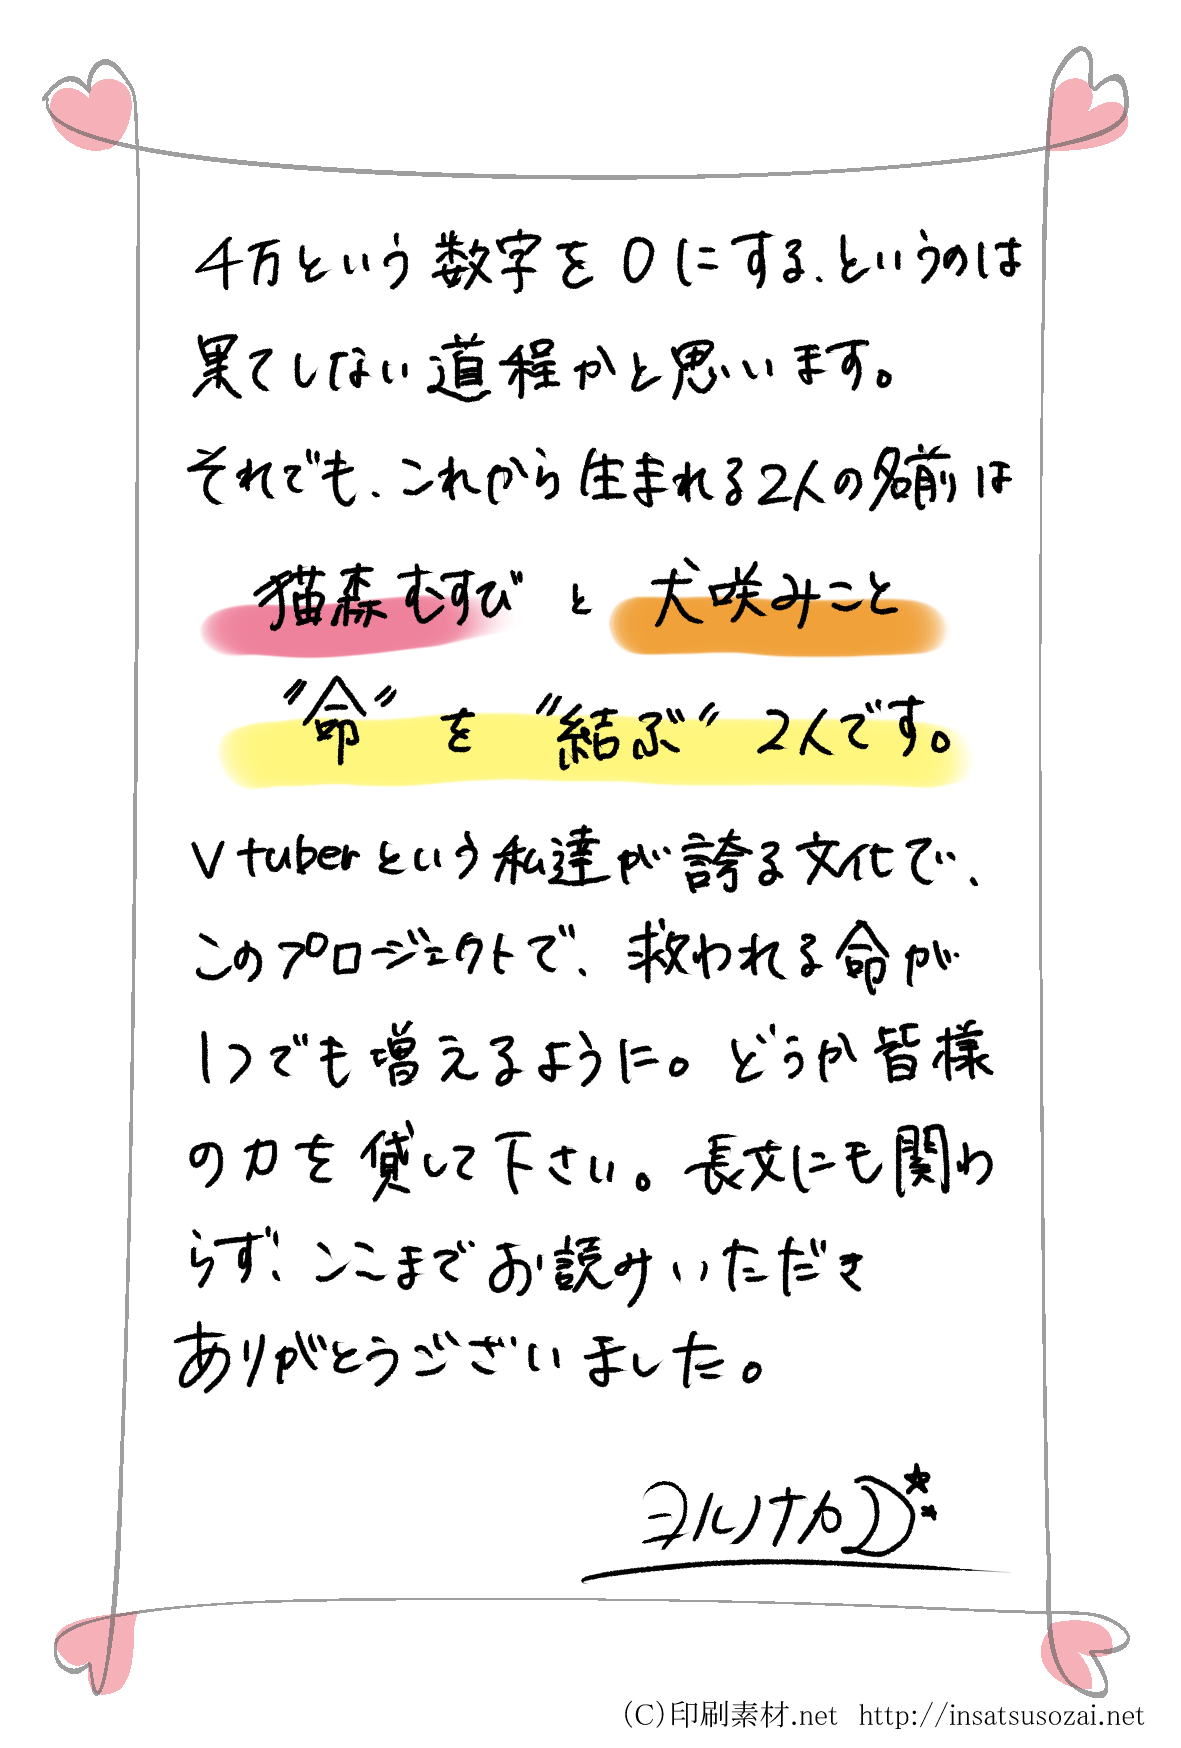 4万という数字を0にする、というのは
果てしない道程かと思います。
それでも、これから生まれる2人の名前は
猫森むすび と 犬咲みこと
"命" を "結ぶ" 2人です。
Vtuberという私達が誇る文化で、
このプロジェクトで、救われる命が
1つでも増えるように。どうか皆様
の力を貸して下さい。長文にも関わ
らず、ここまでお読みいただき
ありがとうございました。
ヨルノナカ
(C)印刷素材.net http://insatsusozai.net